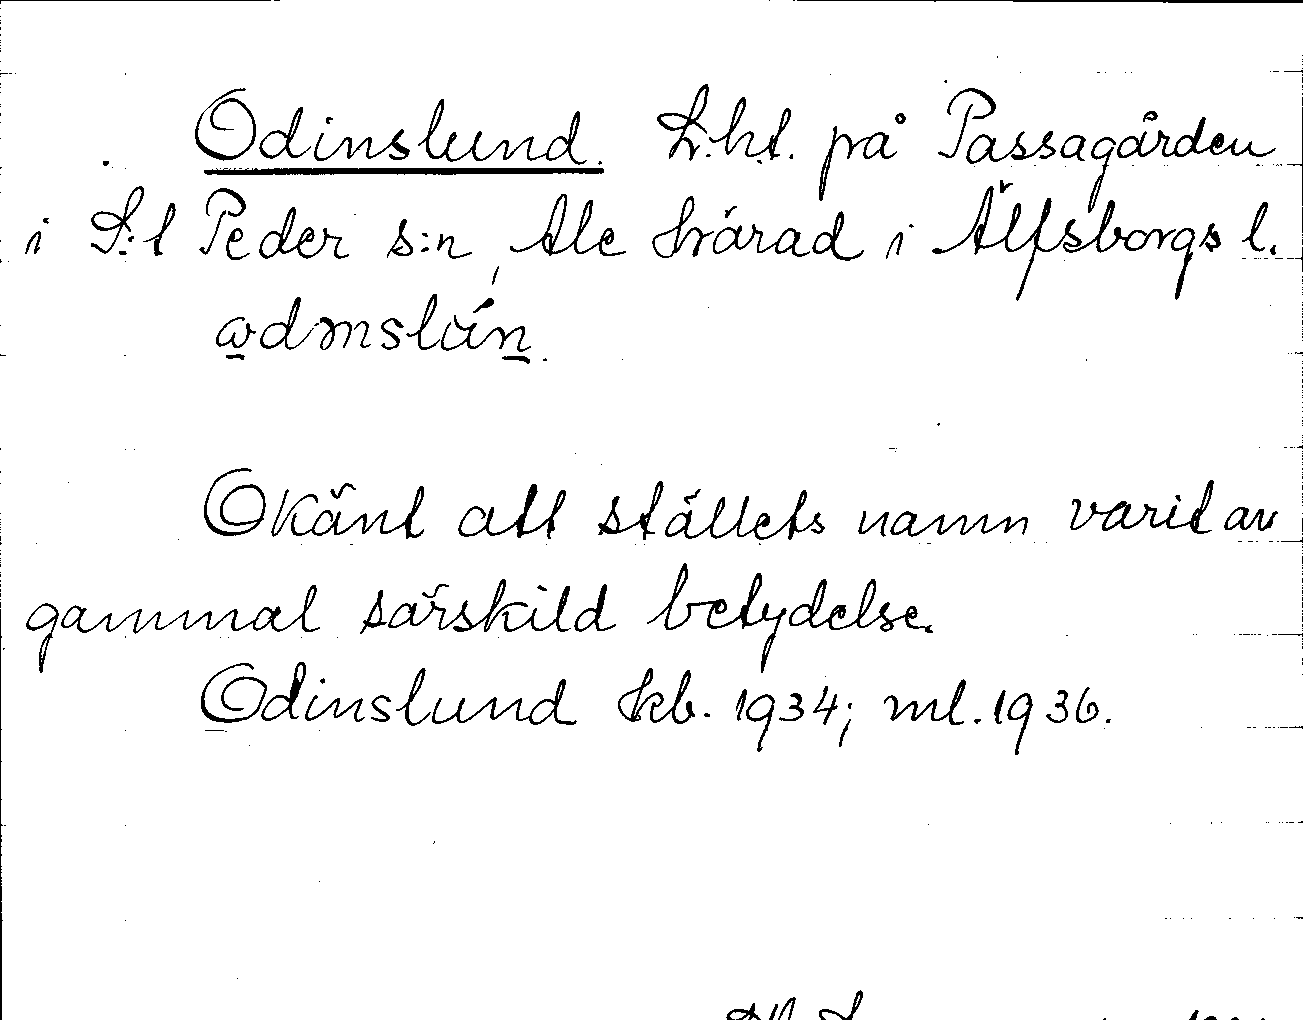 Odinslund. L.h.t. på Passagården
i S:t Peder s:n, Ale härad i Älfsborgs l.
Okänt att ställets namn varit av
gammal särskild betydelse.
Odinslund kb. 1934; ml. 1936.